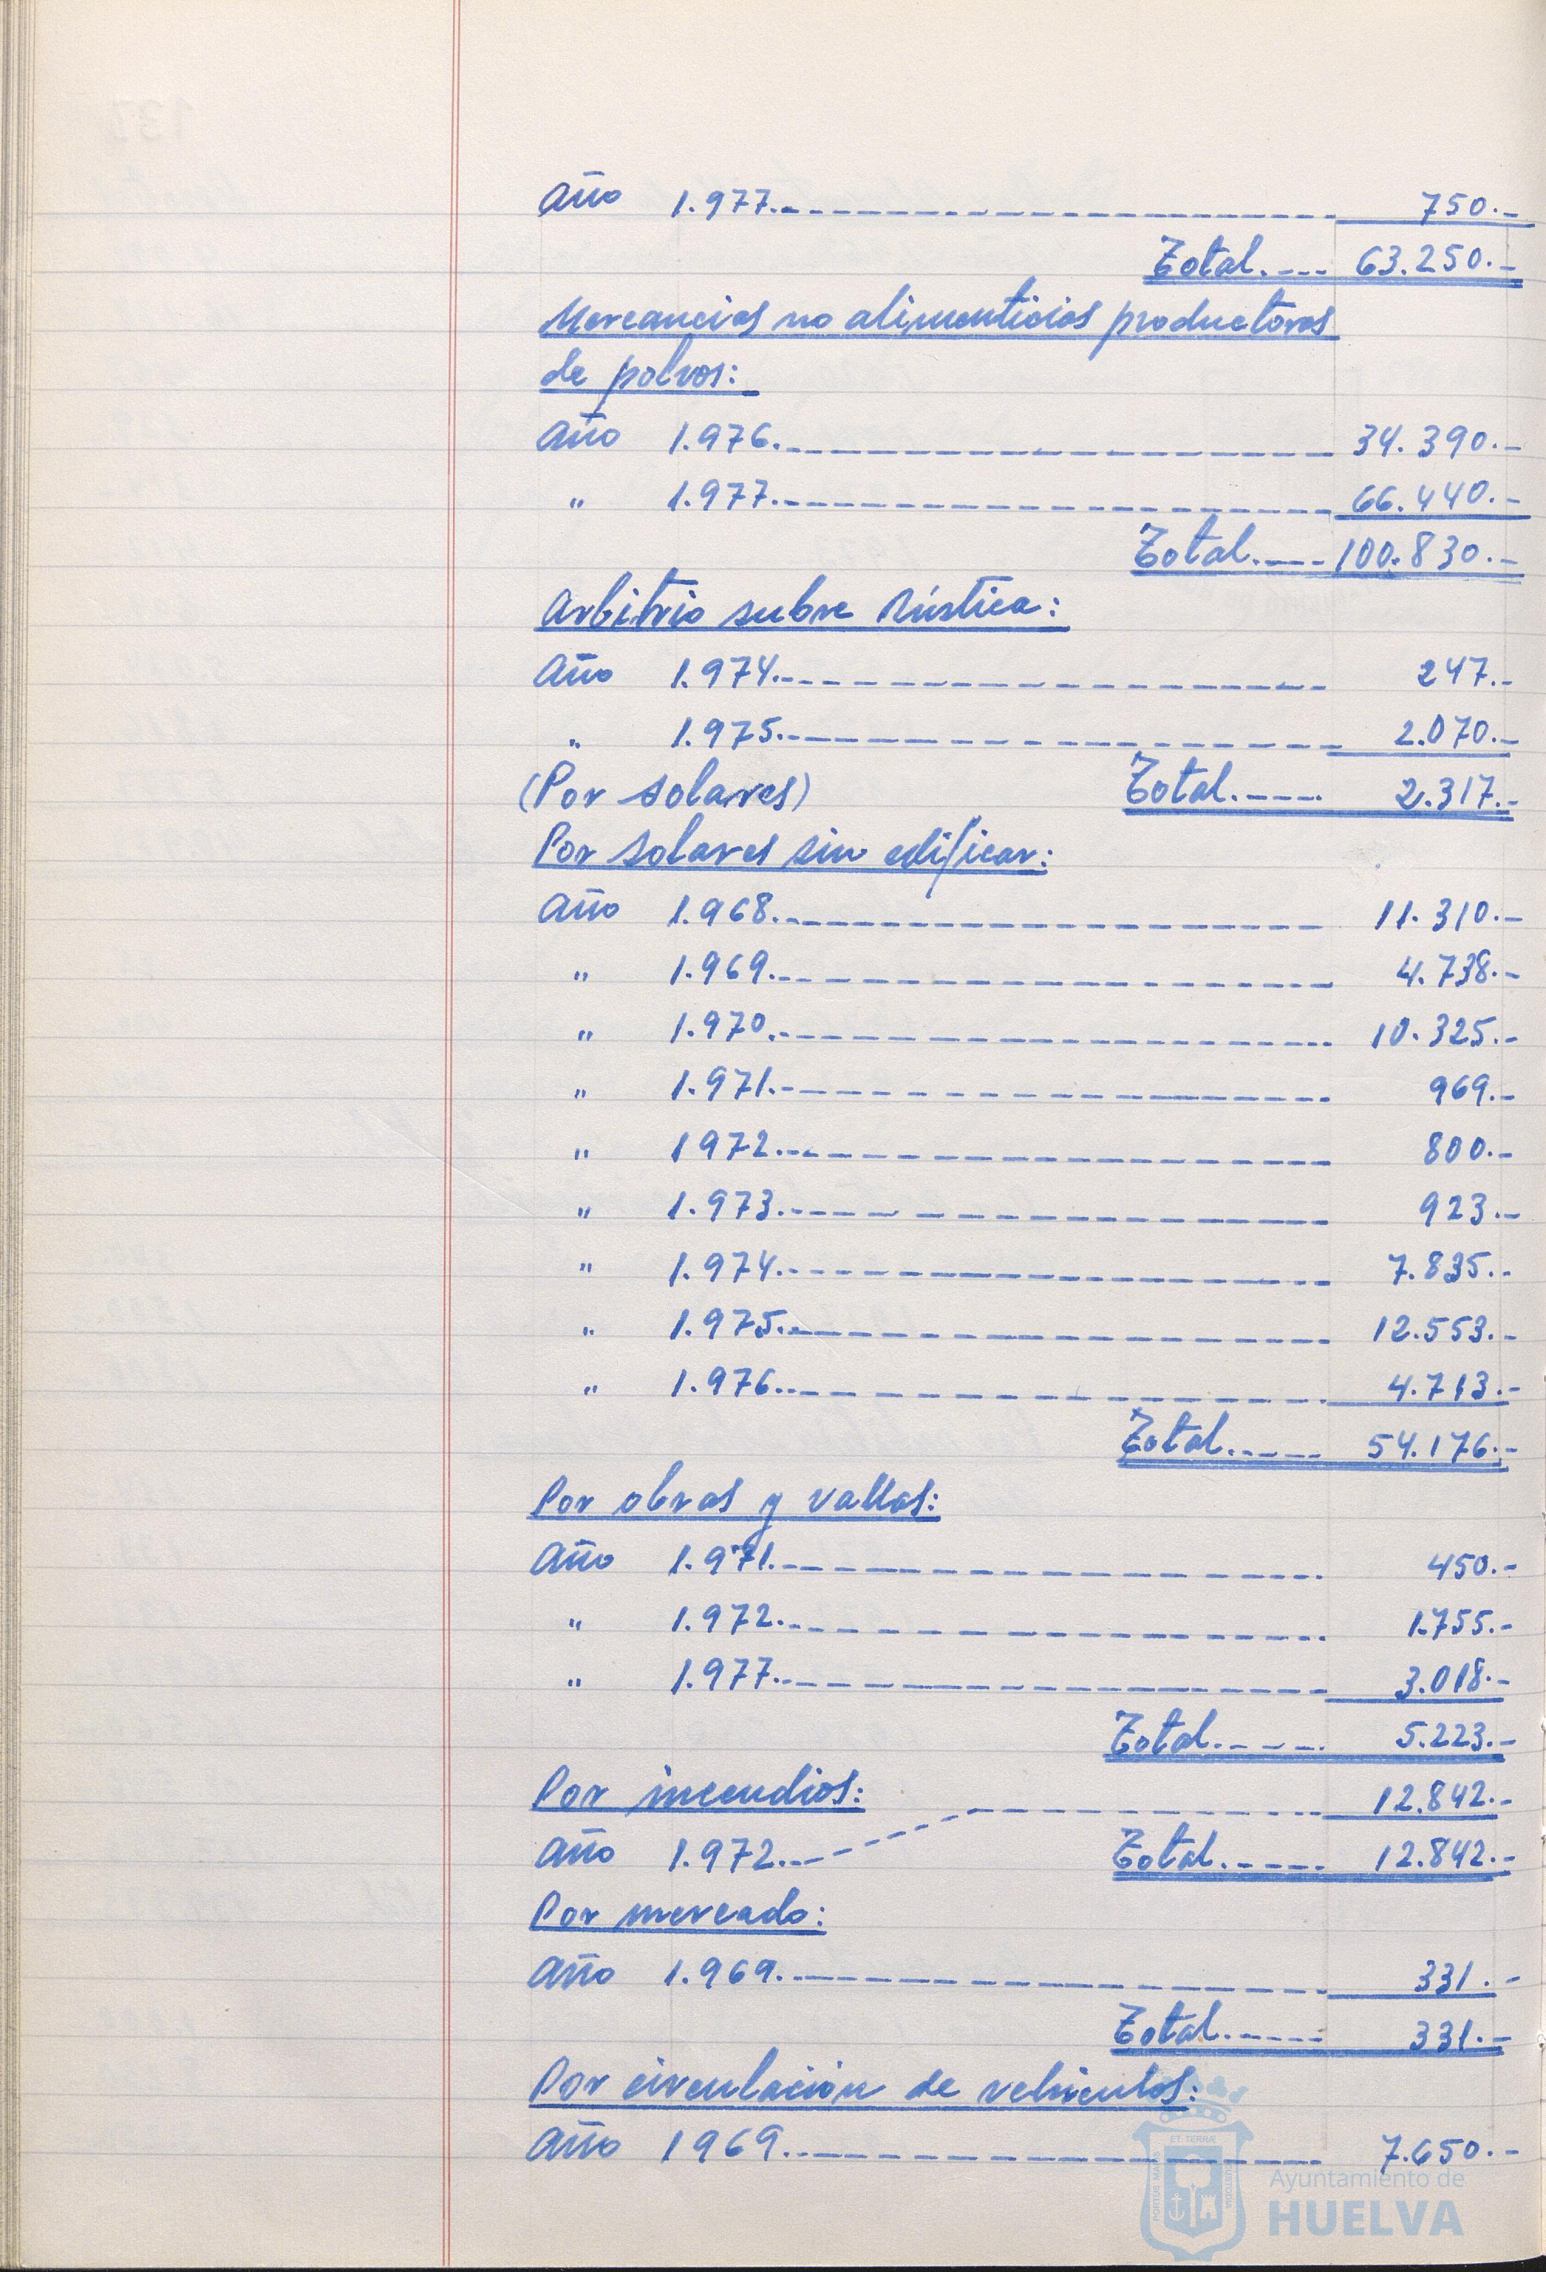 Año 1.977.------------------ 750.-
Total.---- 63.250.-
Mercancias no alimenticias productoras
de polvos:
Año 1.976.------------------ 34.390.-
" 1.977.------------------ 66.440.-
Total.---- 100.830.-
Arbitrio sobre Rústica:
Año 1.974.------------------ 247.-
" 1.975.------------------ 2.070.-
(Por solares) Total.----- 2.317.-
Por solares sin edificar:
Año 1.968.------------------ 11.310.-
" 1.969.------------------ 4.738.-
" 1.970.------------------ 10.325.-
" 1.971.------------------ 969.-
" 1972.------------------ 800.-
" 1.973.------------------ 923.-
" 1.974.------------------ 7.835.-
" 1.975.------------------ 12.553.-
" 1.976.------------------ 4.713.-
Total.----- 54.176.-
Por obras y vallas:
Año 1.971.------------------ 450.-
" 1.972.------------------ 1.755.-
" 1.977.------------------ 3.018.-
Total.----- 5.223.-
Por incendios: ------------ 12.842.-
Año 1.972.--- Total.----- 12.842.-
Por mercado:
Año 1.969.------------------ 331.-
Total.----- 331.-
Por circulación de vehiculos:
Año 1969.------------------ 7.650.-
PORTUS MARIS ET TERRÆ CUSTODIA
Ayuntamiento de
HUELVA